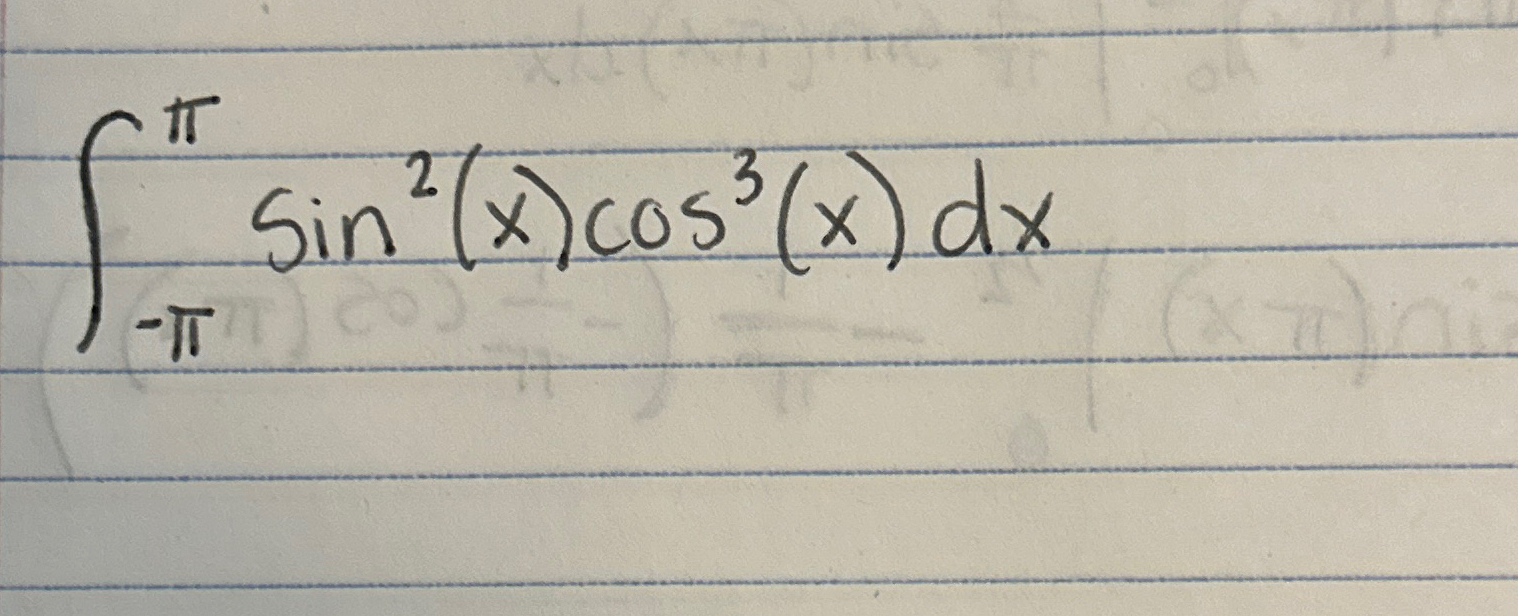 ∫_{-π}^{π} sin²(x)cos³(x) dx